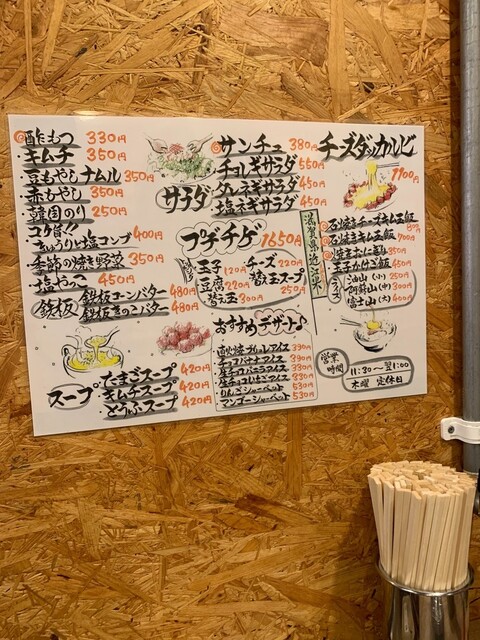 酢もつ 330円
キムチ 350円
豆もやしナムル 350円
赤もやし 350円
韓国のり 250円
コク旨!!
きゅうりと塩コンブ 400円
季節の焼き野菜 350円
塩やっこ 450円
鉄板
鉄板コーンバター 480円
鉄板きのこバター 480円
スープ
たまごスープ 420円
キムチスープ 420円
とうふスープ 420円
サラダ
サンチュ 380円
チョレギサラダ 550円
ダレネギサラダ 450円
塩ネギサラダ 450円
プチチゲ 1650円
玉子 120円
豆腐 220円
替玉 300円
チーズ 220円
替玉スープ 250円
おすすめデザート♪
アイス 390円
チョコバナナアイス 390円
チョコバニラアイス 330円
生チョコいちごアイス 530円
りんごシャーベット 530円
マンゴーシャーベット 530円
チーズダッカルビ 1100円
滋賀県近江米
石焼きチーズキムチ飯 800円
石焼きキムチ飯 700円
焼きおにぎり 350円
玉子かけご飯 450円
ライス
油山(小) 250円
阿蘇山(中) 300円
富士山(大) 400円
営業時間
11:30〜翌1:00
木曜 定休日